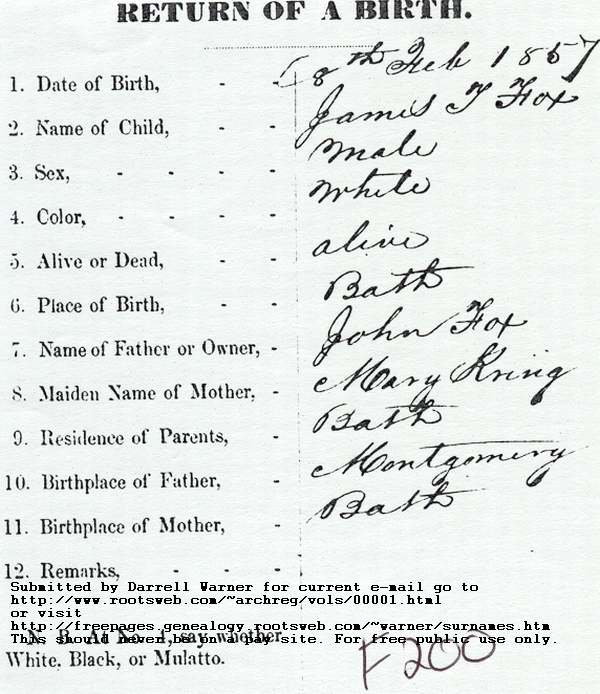 RETURN OF A BIRTH.
1. Date of Birth, - - 8th Feb 1857
2. Name of Child, - - James T Fox
3. Sex, - - - - male
4. Color, - - - - white
5. Alive or Dead, - - alive
6. Place of Birth, - - Bath
7. Name of Father or Owner, - John Fox
8. Maiden Name of Mother, - Mary Kring
9. Residence of Parents, - Bath
10. Birthplace of Father, - Montgomery
11. Birthplace of Mother, - Bath
12. Remarks, - - - -
Submitted by Darrell Warner for current e-mail go to
http://www.rootsweb.com/~archreg/vols/00001.html
or visit
http://freepages.genealogy.rootsweb.com/~warner/surnames.htm
This should never be on a pay site. For free public use only.
N. B. At No. 4, say whether
White, Black, or Mulatto.
F200